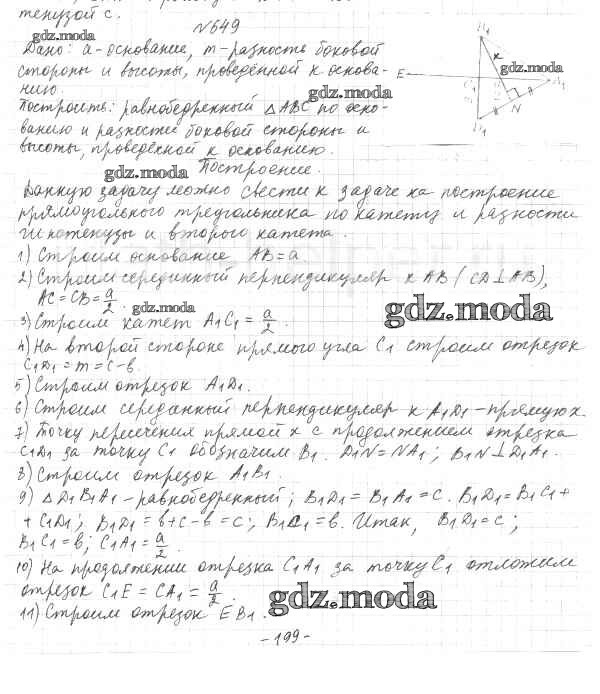 тенузой c.
№649
gdz.moda
Дано: a-основание, m-разность боковой
стороны и высоты, проведённой к основа-
нию.
gdz.moda
Построить: равнобедренный △ABC по осно-
ванию и разности боковой стороны и
высоты, проведённой к основанию.
gdz.moda
Построение.
B1
x
gdz.moda
E
A1
N
D1
Данную задачу можно свести к задаче на построение
прямоугольного треугольника по катету и разности
гипотенузы и второго катета.
1) Строим основание AB=a
2) Строим серединный перпендикуляр к AB (CD⊥AB),
AC=CB=a/2.
gdz.moda
gdz.moda
3) Строим катет A1C1=a/2.
4) На второй стороне прямого угла C1 строим отрезок
C1D1=m=c-b.
5) Строим отрезок A1D1.
6) Строим серединный перпендикуляр к A1D1-прямую x.
7) Точку пересечения прямой x с продолжением отрезка
C1D1 за точку C1 обозначим B1. D1N=NA1; B1N⊥D1A1.
8) Строим отрезок A1B1.
9) △D1B1A1-равнобедренный; B1D1=B1A1=c. B1D1=B1C1+
+C1D1; B1D1=b+c-b=c; B1C1=b. Итак, B1D1=c;
B1C1=b; C1A1=a/2.
10) На продолжении отрезка C1A1 за точку C1 отложим
отрезок C1E=CA1=a/2.
gdz.moda
11) Строим отрезок EB1.
-199-